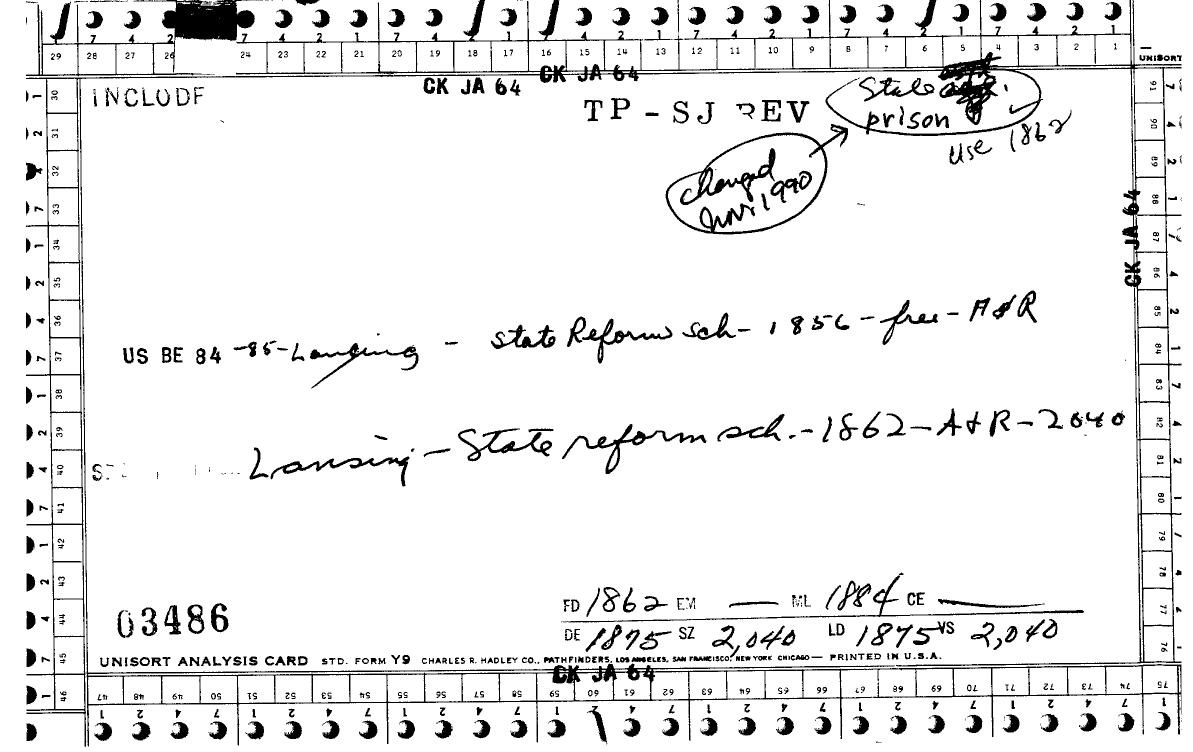 7 4 2 7 4 2 1 7 4 2 1 7 4 2 1 7 4 2 1 7 4 2 1
29 28 27 26 24 23 22 21 20 19 18 17 16 15 14 13 12 11 10 9 8 7 6 5 4 3 2 1
UNISORT
CK JA 64 CK JA 64
INCLUDE
TP - SJ REV
State
prison
use 1862
changed
Nov. 1990
CK JA 64
US BE 84-85-Lansing - State Reform sch- 1856-free-A&R
Lansing-State reform sch.-1862-A&R-2040
03486
FD 1862 EM — ML 1884 CE —
DE 1875 SZ 2,040 LD 1875 VS 2,040
UNISORT ANALYSIS CARD STD. FORM Y9 CHARLES R. HADLEY CO., PATHFINDERS, LOS ANGELES, SAN FRANCISCO, NEW YORK CHICAGO— PRINTED IN U.S.A.
CK JA 64
30 31 32 33 34 35 36 37 38 39 40 41 42 43 44 45 46
91 90 89 88 87 86 85 84 83 82 81 80 79 78 77 76 75
47 48 49 50 51 52 53 54 55 56 57 58 59 60 61 62 63 64 65 66 67 68 69 70 71 72 73 74
1 2 4 7 1 2 4 7 1 2 4 7 1 2 4 7 1 2 4 7 1 2 4 7 1 2 4 7 1